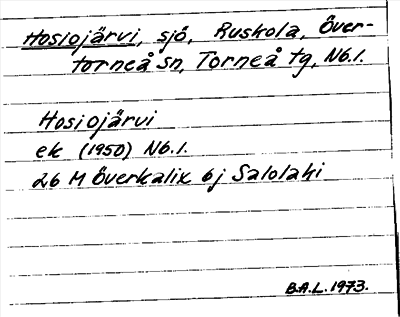 Hosiojärvi, sjö, Ruskola, Över-
torneå sn, Torneå tg, Nb.l.
Hosiojärvi
ek (1950) Nb.l.
26 M Överkalix 6j Salolaki
B.A.L. 1973.